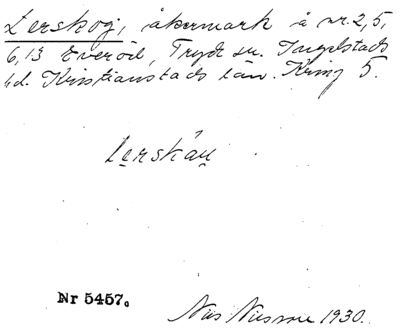 Lerskog, åkermark å nr 2, 5,
6, 13 Everöd, Tryde sn. Ingelstads
hd. Kristianstads län. Kring 5.
Lerskáu
Nr 5457.
1930.